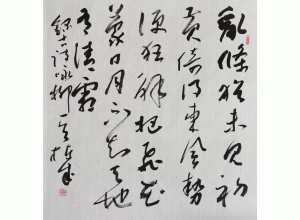 亂條猶未變初
黄倚得東風勢
便狂解把飛花
蒙日月不知天地
有清霜
錄古詩詠柳